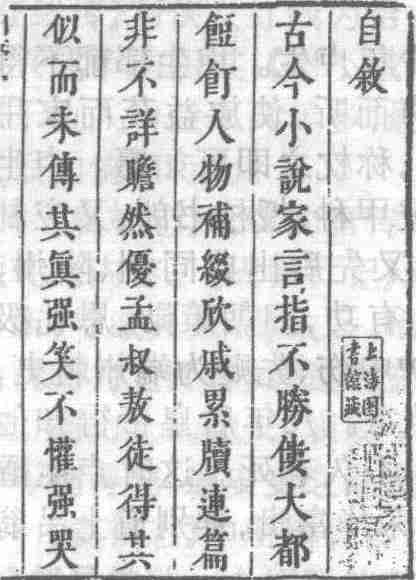 自敘
古今小說家言指不勝僂大都
餖飣人物補綴欣戚累牘連篇
非不詳贍然優孟叔敖徒得其
似而未傳其眞强笑不懽强哭
上海图
書館藏